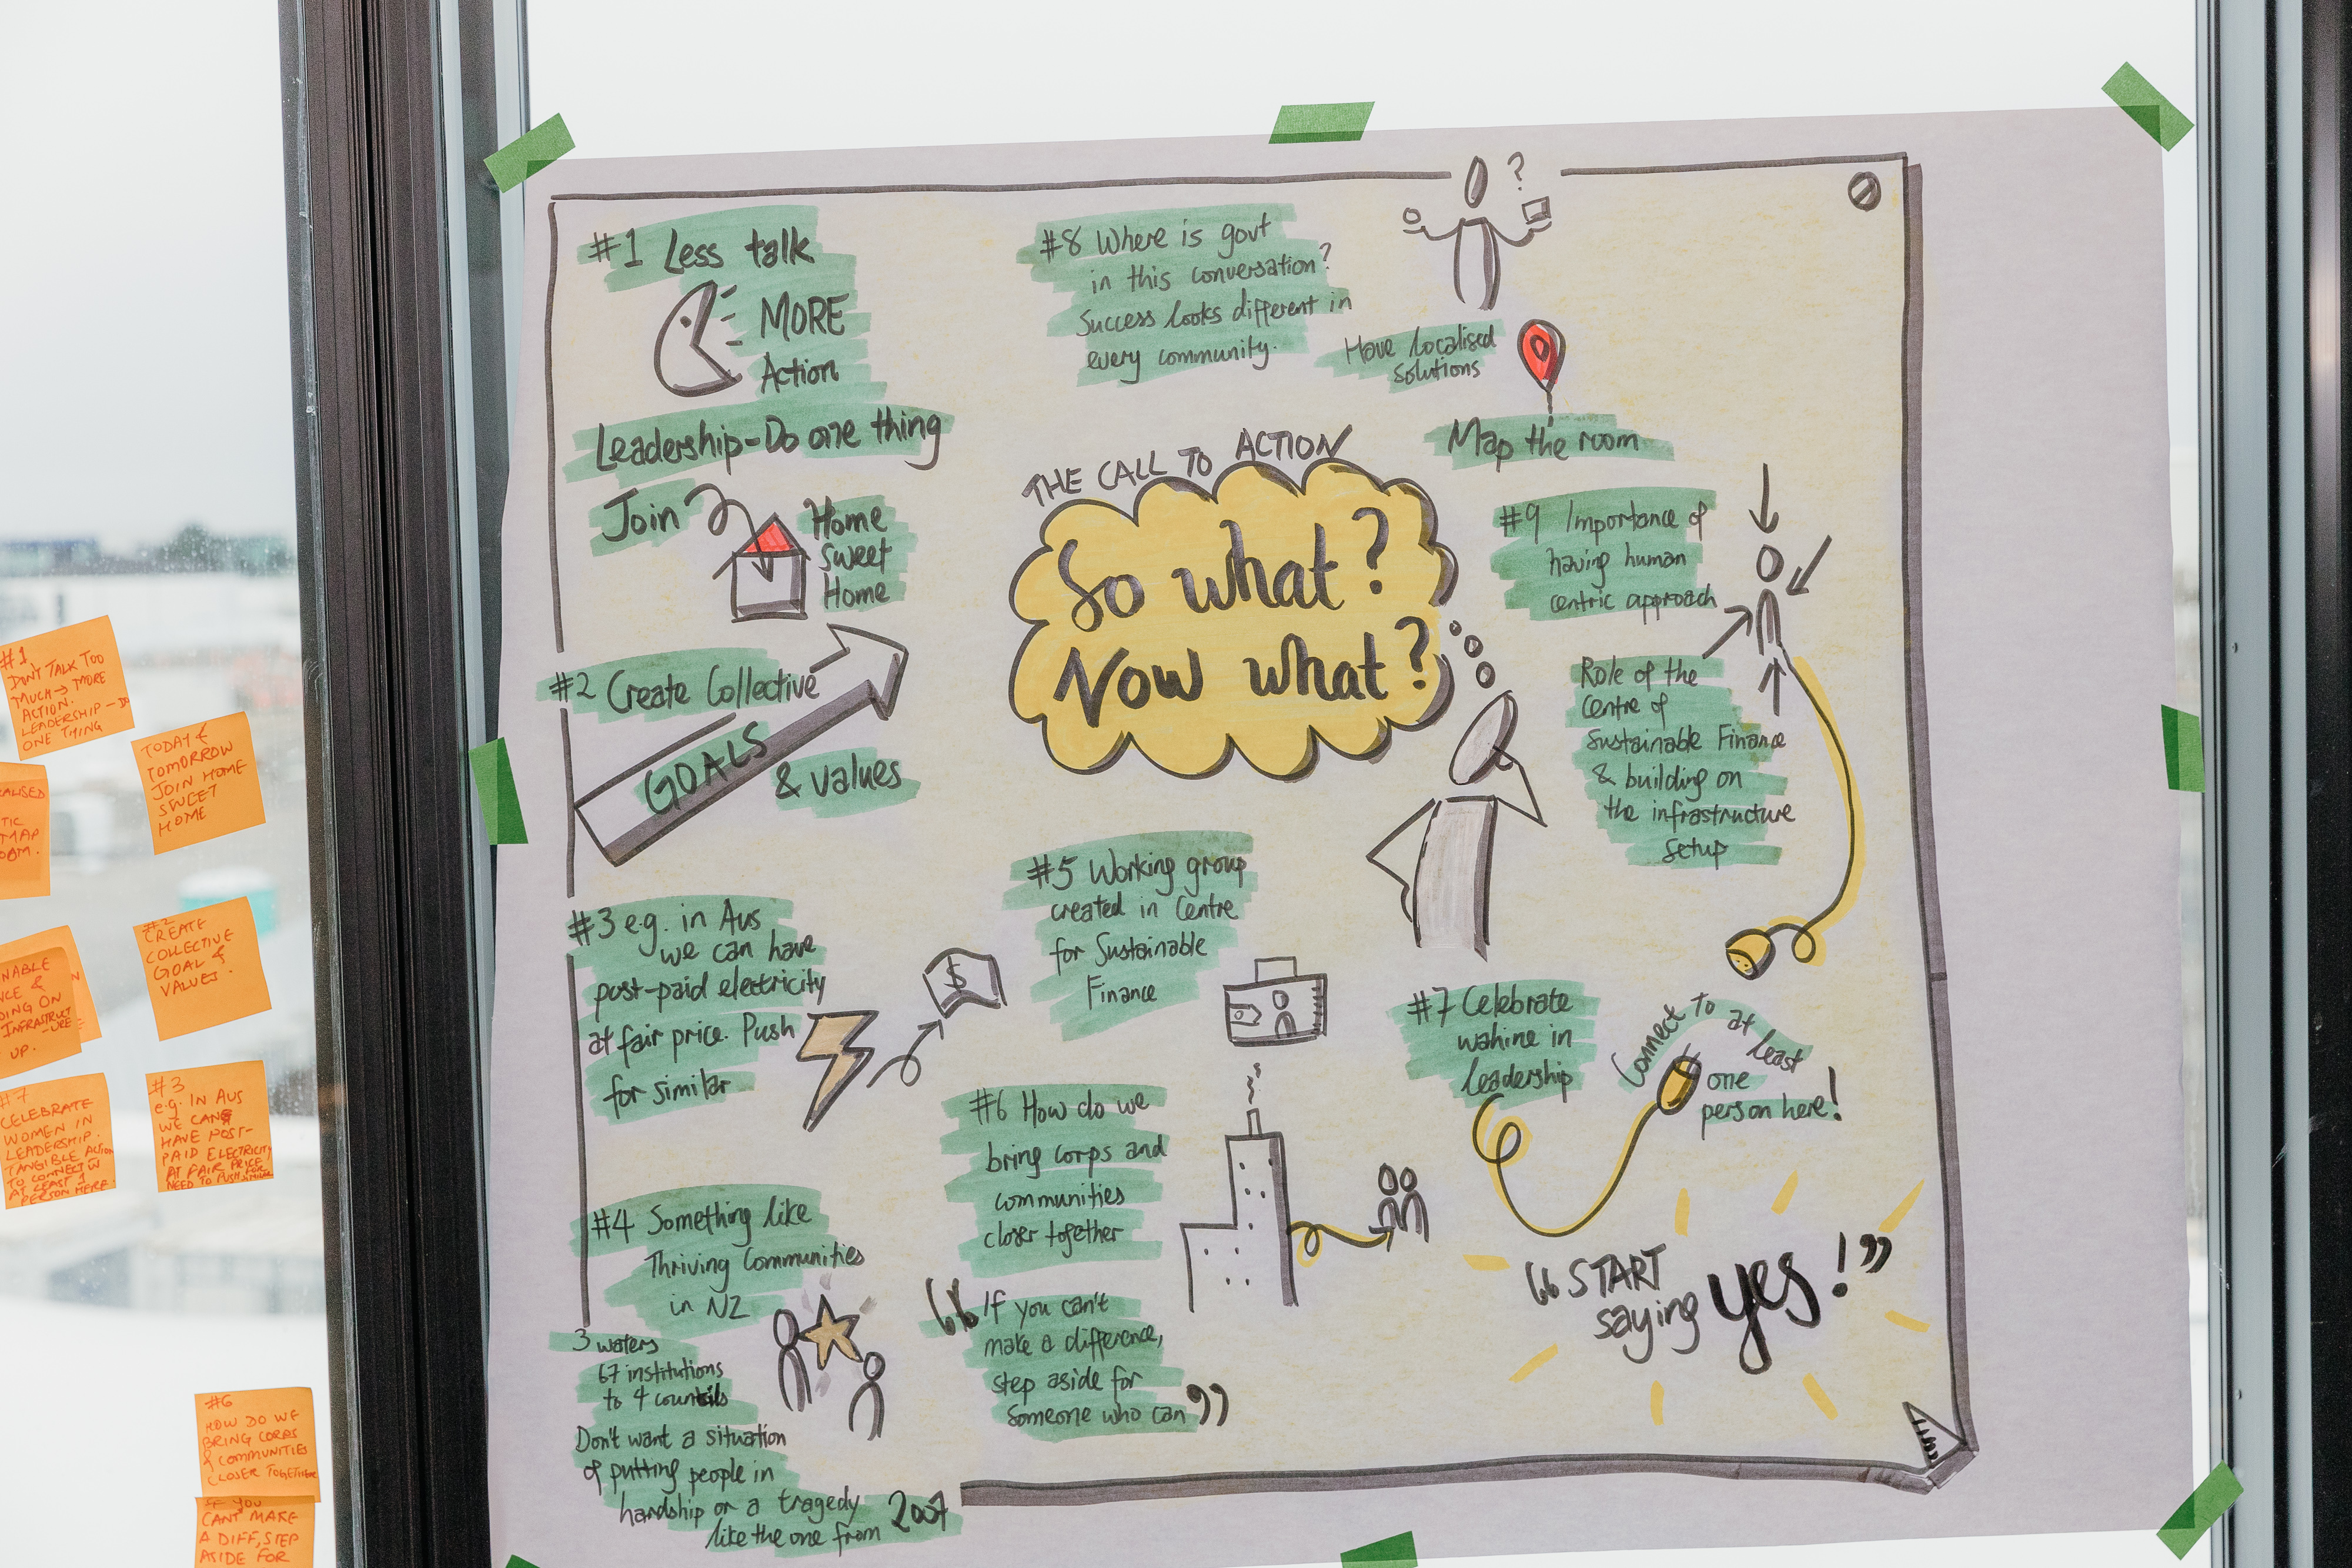 #1 Less talk
MORE
Action
Leadership-Do one thing
Join
Home
Sweet
Home
#2 Create Collective
GOALS
& values
#3 e.g. in Aus
we can have
post-paid electricity
at fair price. Push
for similar
$
#4 Something like
Thriving Communities
in NZ
3 waters
67 institutions
to 4 councils
Don't want a situation
of putting people in
hardship or a tragedy
like the one from 2007
#8 Where is govt
in this conversation?
Success looks different in
every community.
?
Have localised
solutions
Map the room
THE CALL TO ACTION
So what?
Now what?
#5 Working group
created in Centre
for Sustainable
Finance
#6 How do we
bring corps and
communities
closer together
"If you can't
make a difference,
step aside for
someone who can"
#9 Importance of
having human
centric approach
Role of the
Centre of
Sustainable Finance
& building on
the infrastructure
setup
#7 Celebrate
wahine in
leadership
Connect to at least
one
person here!
"START
saying yes!"
#1
DON'T TALK TOO
MUCH → MORE
ACTION.
LEADERSHIP - DO
ONE THING
TODAY &
TOMORROW
JOIN HOME
SWEET
HOME
MAP
#2
CREATE
COLLECTIVE
GOAL &
VALUES.
ING ON
INFRASTRUCT
-URE
UP.
#7
CELEBRATE
WOMEN IN
LEADERSHIP.
TANGIBLE ACTION
TO CONNECT W
AT LEAST 1
PERSON HERE.
#3
e.g. IN AUS
WE CAN
HAVE POST-
PAID ELECTRICITY
AT FAIR PRICE
NEED TO PUSH FOR SIMILAR
#6
HOW DO WE
BRING CORPS
& COMMUNITIES
CLOSER TOGETHER
IF YOU
CAN'T MAKE
A DIFF, STEP
ASIDE FOR